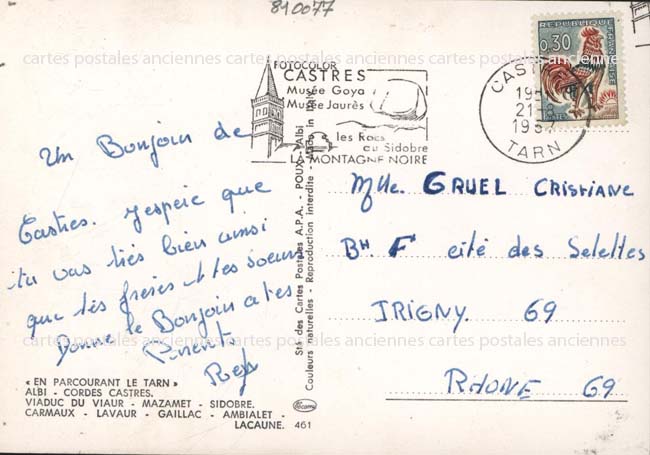 810077
cartes postales anciennes cartes postales anciennes cartes postales anciennes
FOTOCOLOR
CASTRES
Musée Goya
Musée Jaurès
les Rocs
du Sidobre
LA MONTAGNE NOIRE
REPUBLIQUE FRANÇAISE
0,30
POSTES
CASTRES
21-8
TARN
Un Bonjour de
Castres. J'espère que
tu vas très bien ainsi
que tes frères et tes soeurs
Donne le Bonjour a tes
Parents
Sté des Cartes Postales A.P.A. - POUX - Albi
Couleurs naturelles - Reproduction interdite - Made in Italy
Mlle GRUEL CRISTIANE
Bt F cité des Selettes
IRIGNY 69
RHONE 69
« EN PARCOURANT LE TARN »
ALBI - CORDES CASTRES.
VIADUC DU VIAUR - MAZAMET - SIDOBRE.
CARMAUX - LAVAUR - GAILLAC - AMBIALET -
LACAUNE. 461